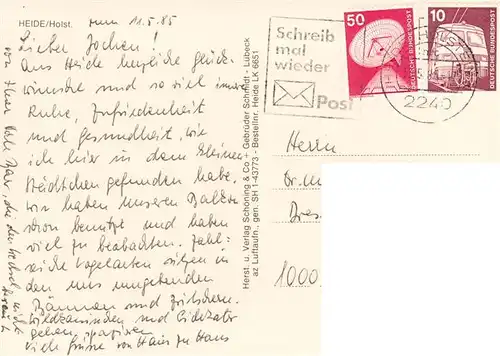 HEIDE/Holst.
zum 11.5.85
Lieber Jochen!
Aus Heide herzliche Glück-
wünsche und so viel innere
Ruhe, Zufriedenheit
und Gesundheit, wie
ich hier in dem kleinen
Städtchen gefunden habe.
Wir haben unseren
schon benutzt und haben
viel zu beobachten. Zahl-
reiche Vogelarten sitzen in
den uns umgebenden
Bäumen und zwitschern.
Wildkaninchen und
gehen spazieren
Viele Grüsse von Haus zu Haus
Herst. u. Verlag Schöning & Co + Gebrüder Schmidt - Lübeck
az Luftaufn., gen. SH 1-43773 - Bestellnr. Heide LK 6651
Schreib
mal
wieder
Post
50
DEUTSCHE BUNDESPOST
10
DEUTSCHE BUNDESPOST
2240
Herrn
Dr.
1000